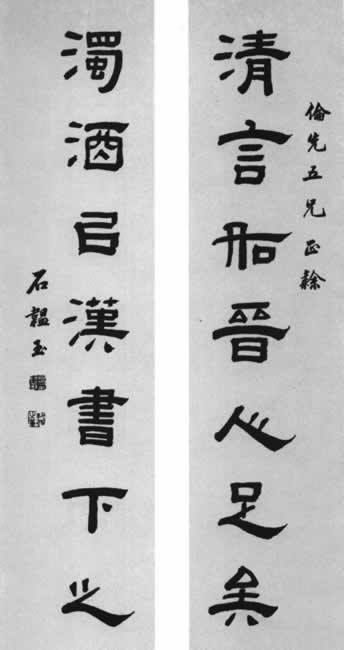 倫先五兄正
清言如晉人足矣
濁酒以漢書下之
石韞玉